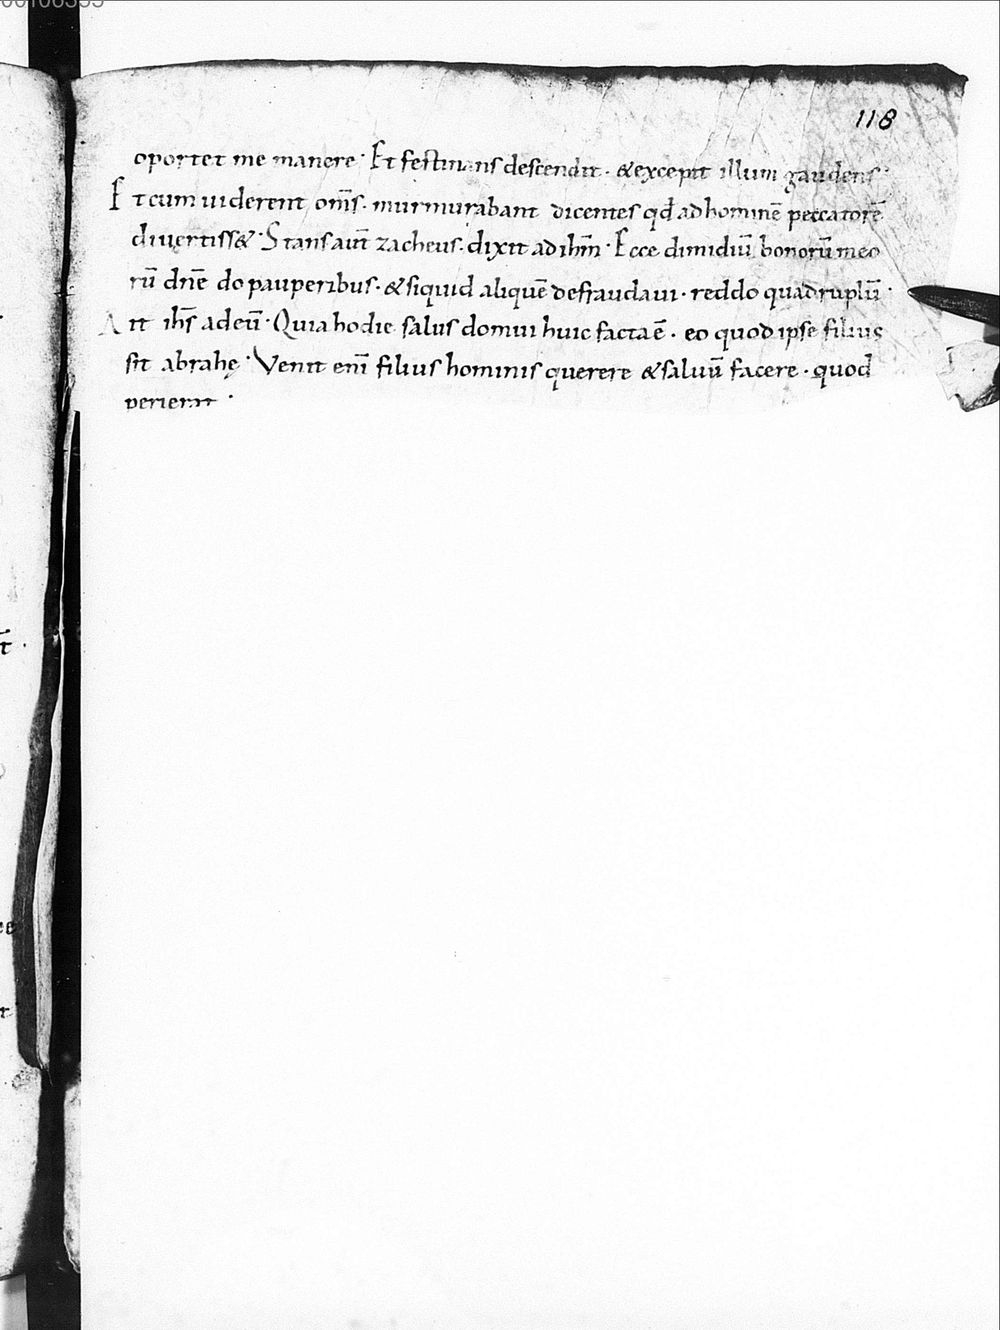 118
oportet me manere · Et festinans descendit · &excepit illum gaudens ·
Et cum uiderent om̅s · murmurabant dicentes qđ ad hominē peccatorē
diuertiss& · Stans aut̅ zacheus · dixit ad ihm̅ · Ecce dimidiū bonorū meo
rū dn̄e do pauperibus · & siquid aliquē defraudaui · reddo quadruplū ·
Ait ihs̅ ad eū · Quia hodie salus domui huic facta ē · eo quod ipse filius
sit abrahę · Venit eni̅ filius hominis querere & saluū facere · quod
perierat ·